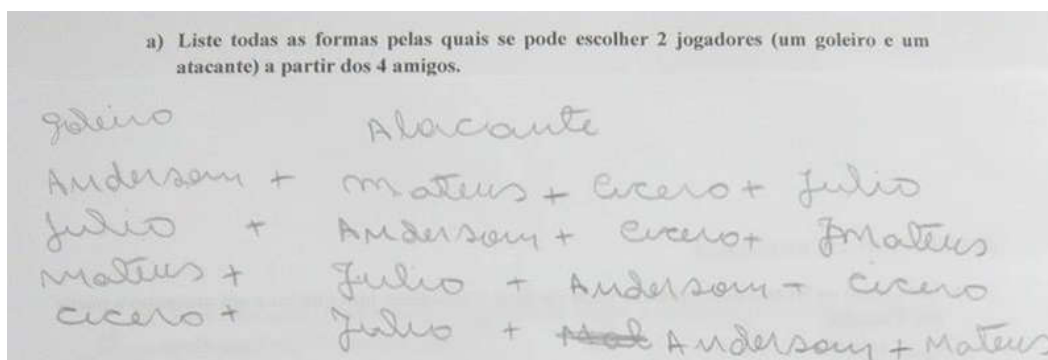 a) Liste todas as formas pelas quais se pode escolher 2 jogadores (um goleiro e um
atacante) a partir dos 4 amigos.
goleiro Atacante
Anderson + Mateus + Cicero + Julio
Julio + Anderson + Cicero + Mateus
Mateus + Julio + Anderson + Cicero
Cicero + Julio + Anderson + Mateus